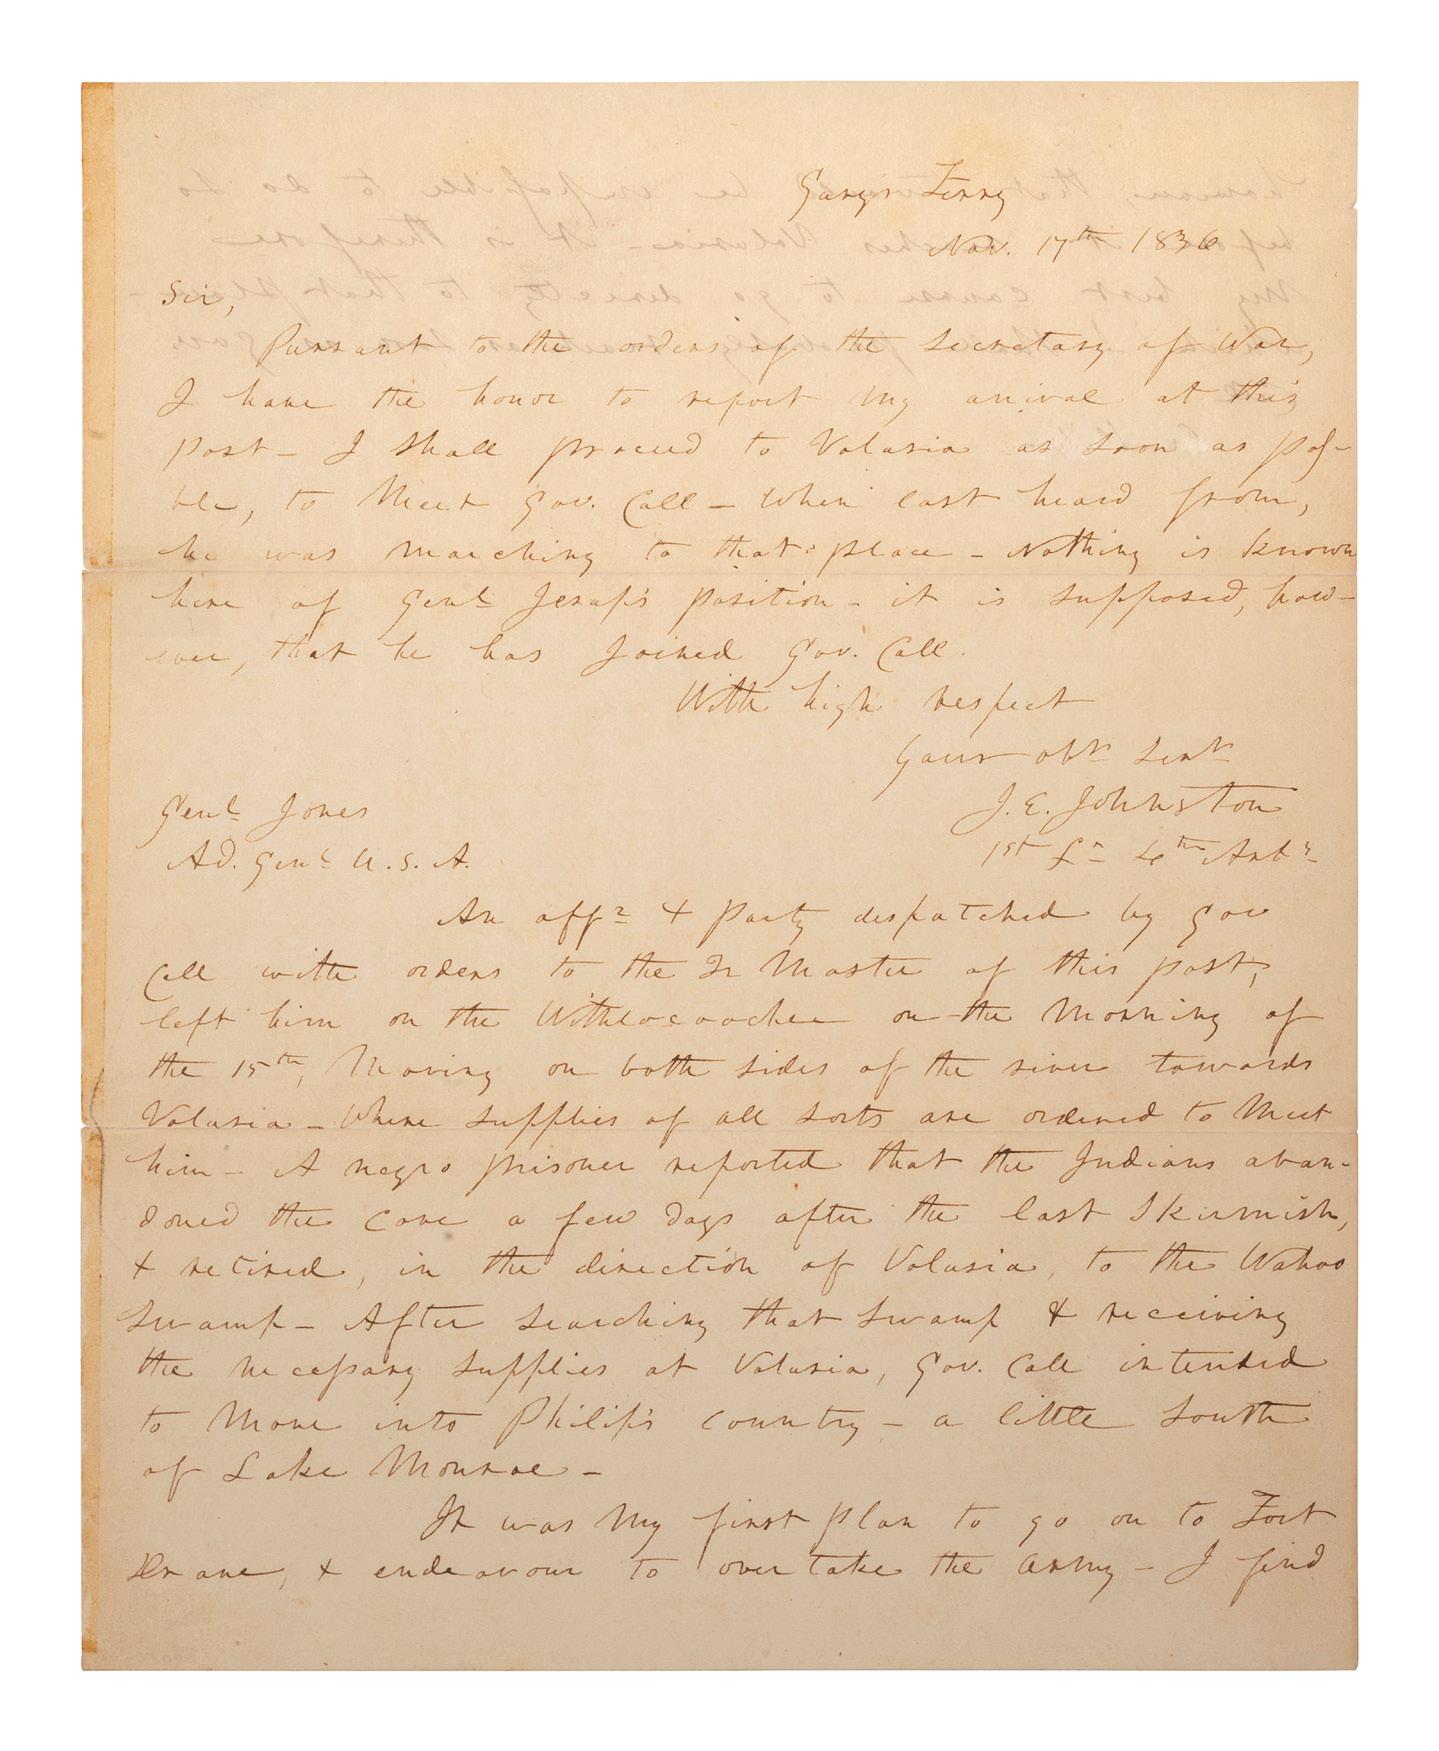 Gary's Ferry
Nov. 17th 1836
Sir,
Pursuant to the orders of the Secretary of War,
I have the honor to report my arrival at this
post – I shall proceed to Volusia as soon as possi-
ble, to meet Gov. Call – When last heard from,
he was marching to that place – Nothing is known
here of Genl. Jesup's position – it is supposed, how-
ever, that he has joined Gov. Call.
With high respect
Your obt. Servt.
J. E. Johnston
1st Lt. 4th Arty.
Genl. Jones
Ad. Genl. U.S.A.
An offr. & party despatched by Gov
Call with orders to the Qr Master of this post,
left him on the Withlocoochee on the morning of
the 15th, moving on both sides of the river towards
Volusia – Where supplies of all sorts are ordered to meet
him – A negro prisoner reported that the Indians aban-
doned the Cove a few days after the last skirmish,
& retired, in the direction of Volusia, to the Wahoo
Swamp – After searching that swamp & receiving
the necessary supplies at Volusia, Gov. Call intended
to move into Philip's country – a little south
of Lake Monroe –
It was my first plan to go on to Fort
Drane, & endeavour to overtake the army – I find